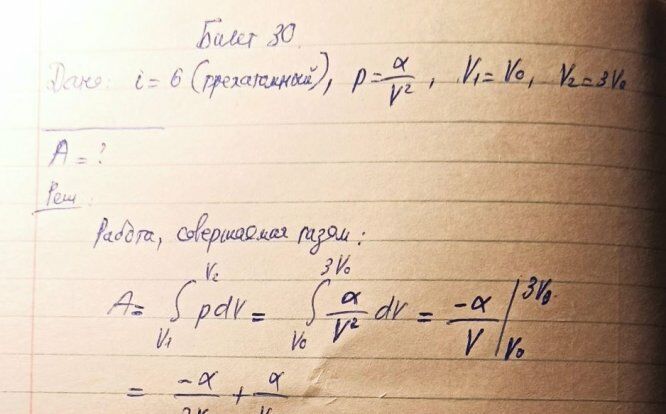 Билет 30.
Дано: i = 6 (трехатомный), p = α/V², V₁ = V₀, V₂ = 3V₀
A = ?
Реш:
Работа, совершаемая газом:
A = ∫_{V₁}^{V₂} p dV = ∫_{V₀}^{3V₀} α/V² dV = -α/V |_{V₀}^{3V₀}
= -α/3V + α/V